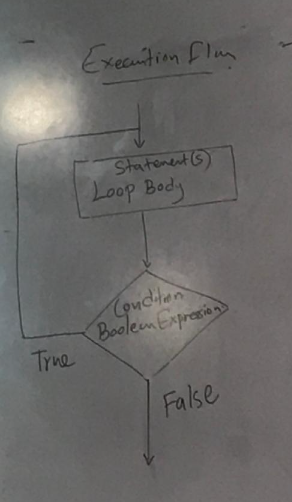 Execution Flow
Statement(s)
Loop Body
Condition
Boolean Expression
True
False